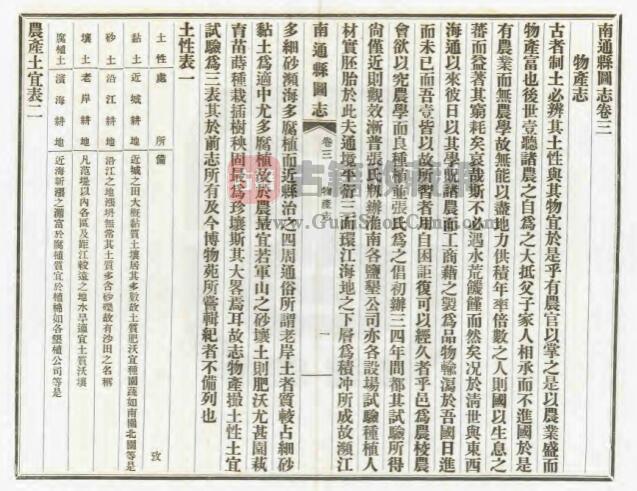 南通縣圖志卷三
物產志
古者制土必辨其土性與其物宜於是乎有農官以掌之是以農業盛而
物產富也後世壹聽諸農之自為之大抵父子家人相承而不進國於是
有農業而無農學故無能以盡地力供積年率倍數之人則國以生息之
蕃而益著其窮耗矣哀哉斯不必遇水荒饑饉而然矣况於清世與東西
海通以來彼日以其學餉諸農而工商藉之製為品物輸瀉於吾國日進
而未已而吾壹皆以故所習者用自困詎復可以經久者乎邑為農校農
會欲以究農學而良種植龍張氏為之倡初辦三四年間都其試驗所得
尚僅近則觀效漸普張氏剏辦淮南各鹽墾公司亦各設場試驗種植人
材實胚胎於此夫通境平衍三面環江海地之下層為積冲所成故瀕江
南通縣圖志
卷三
物產志
一
多細砂瀕海多腐植而近縣治之四周通俗所謂老岸土者質較占細砂
黏土為適中尤多腐植故於農最宜若軍山之砂壤土則肥沃尤甚園蓺
育苗蒔種栽插樹秧固最為珍壤斯其大畧焉耳故志物產撮土性土宜
試驗為三表其於前志所有及今博物苑所嘗輯紀者不備列也
土性表一
土性 處所 備攷
黏土 近城耕地 近城之田大概黏質土壤居其多數故土質肥沃宜種園蔬如南園北園等是
砂土 沿江耕地 沿江之地漲坍無常其土質多含砂礫故有沙田之名稱
壤土 老岸耕地 凡范堤以內各區及距江較遠之地水旱適宜土質沃壤
腐植土 濱海耕地 近海新漲之灘富於腐植質宜於植棉如各墾植公司等是
農產土宜表二
古籍收藏網
www.GunShuCang.com